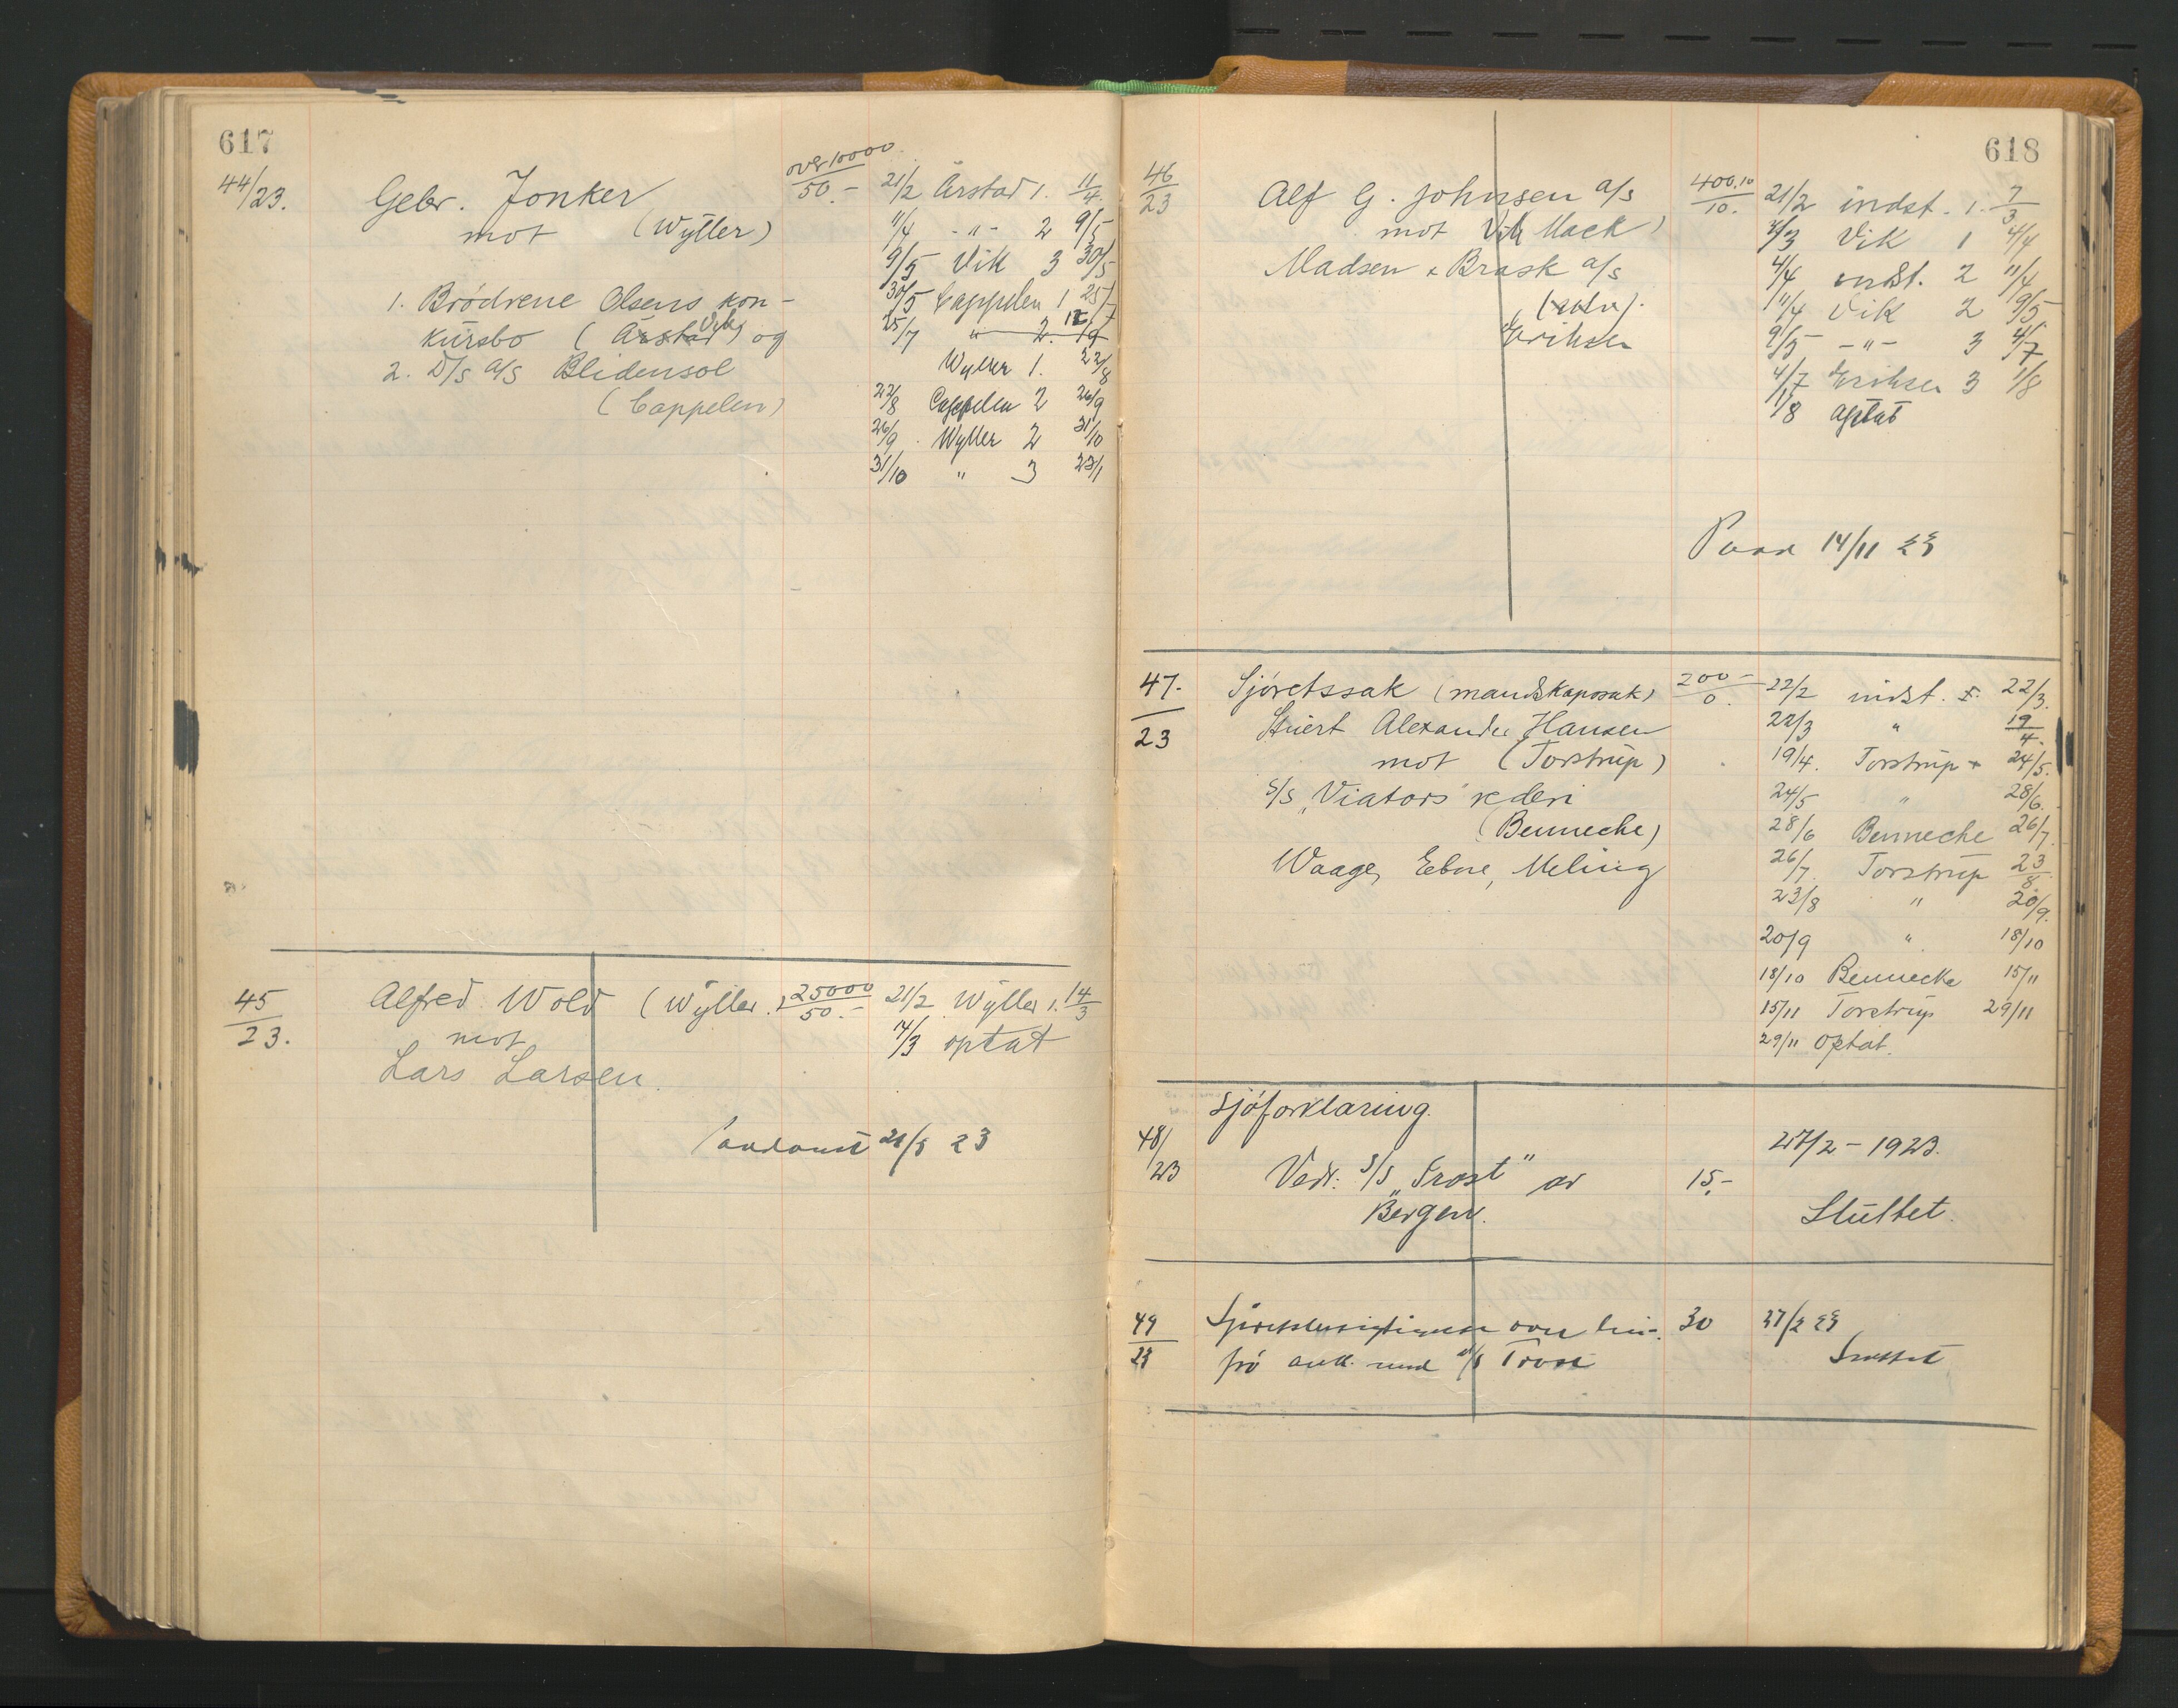 617
44/23. Gebr. Jonker over 10000 / 50.- 21/2 Årstad 1. 11/4.
mot (Wyller) 11/4 -"- 2 9/5
9/5 Vik 3 30/5
1. Brödrene Olsens kon- 30/5 Cappelen 1 25/7
kursbo (Årstad Vik) og 25/7 " 2.
Wyller 1. 22/8
2. D/S A/S Blidensol
(Cappelen) 22/8 Cappelen 2 26/9
26/9 Wyller 2 31/10
31/10 " 3 23/1
45/23. Alfred Wold (Wyller.) 25000 / 50.- 21/2 Wyller 1. 14/3
mot 14/3 optat
Lars Larsen.
23
618
46/23 Alf G. Johnsen A/S 400,10 / 10. 21/2 indst. 1. 7/3
mot Vik Mack) 7/3 Vik 1 4/4
Madsen & Brask A/S 4/4 indst. 2 11/4
11/4 Vik 2 9/5
Eriksen 9/5 -"- 3 4/7
4/7 Eriksen 3 1/8
1/8 optat
14/11 23
47./23 Sjøretssak (mandskapssak) 200- / 0. 22/2 indst. 22/3.
Stuert Alexander Hansen 22/3 " 19/4.
mot (Torstrup) 19/4. Torstrup 24/5.
S/S "Viators" rederi 24/5 " 28/6.
(Bennecke) 28/6 Bennecke 26/7.
Waage, Ebne, Meling 26/7. Torstrup 23/8.
23/8 " 20/9.
20/9 " 18/10
18/10 Bennecke 15/11
15/11 Torstrup 29/11
29/11 optat.
Sjøforklaring.
48/23 27/2 - 1923.
Vedr. S/S "Trost" av 15,-
Bergen. Sluttet.
49/23 over 30 27/2 23
med S/S Trost Sluttet